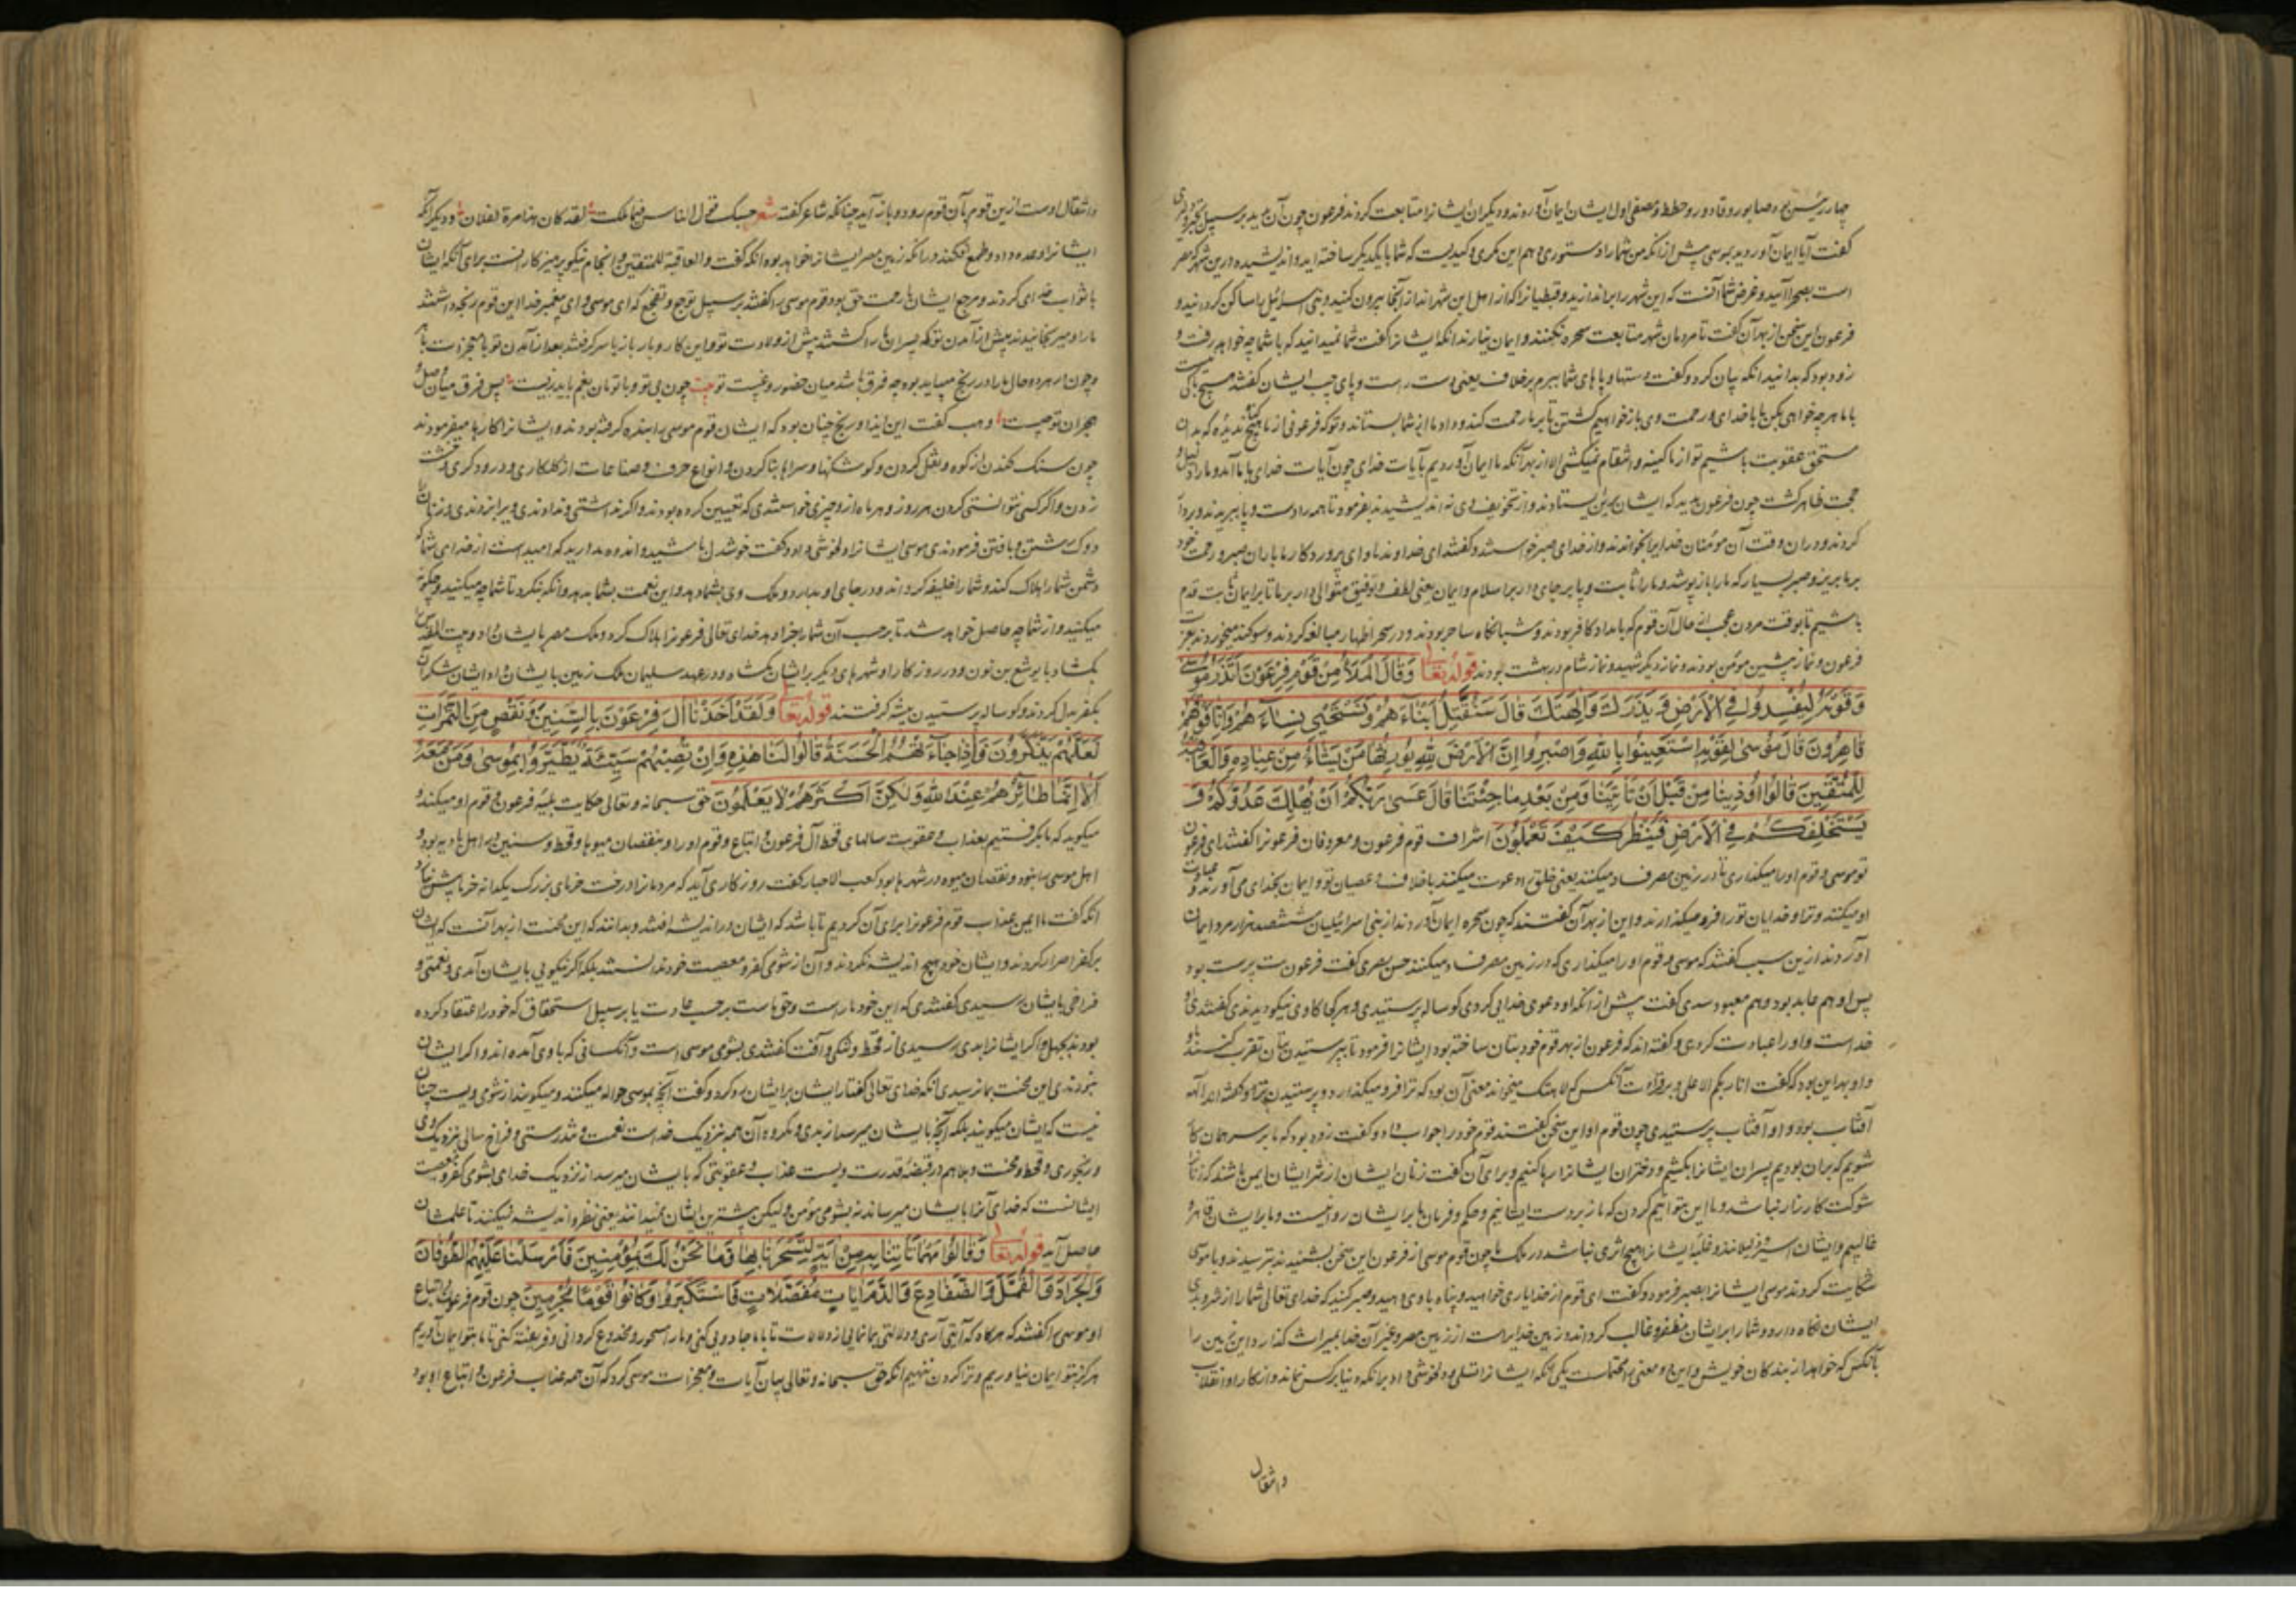 چهار رئیس بود صابور و قادور و حطط و مصفی اول ایشان ایمان آوردند و دیگران ایشانرا متابعت کردند فرعون چون آن بدید بر سبیل
گفت آیا ایمان آوردید بموسی پیش از آنکه من شما را دستوری دهم این مکری و کیدیست که شما با یکدیگر ساخته اید و اندیشیده درین شهر که مصر
است بصحرا آیید و غرض شما آنست که این شهر را براندازید و قبطیانرا که از اهل این شهر اند از اینجا بیرون کنید و بنی اسرائیل را ساکن گردانید و
فرعون این سخن از بهر آن گفت تا مردمان شهر متابعت سحره نکنند و ایمان نیارند آنکه ایشانرا گفت شما نمیدانید که با شما چه خواهد رفت و
زود بود که بدانید آنکه بیان کرد و گفت دستها و پاهای شما ببرم بر خلاف یعنی دست راست و پای چپ ایشان گفتند هیچ باکی نیست
با ما هر چه خواهی بکن ما با خدای و رحمت وی باز خواهیم گشتن تا بر ما رحمت کند و داد ما از شما بستاند و تو که فرعونی از ما هیچ گناه ندیده که بدان
مستحق عقوبت باشیم تو از ما کینه و انتقام نمیکشی الا از بهر آنکه ما ایمان آوردیم بآیات خدای چون آیات خدای بما آمد و ما را دلیل و
حجت ظاهر گشت چون فرعون بدید که ایشان برین بیستادند و از تخویف وی نه اندیشیدند بفرمود تا همه را دست و پا ببریدند و بردار
کردند و در ان وقت آن مومنان خدایرا بخواندند و از خدای صبر خواستند و گفتند ای خداوند ما و ای پروردگار ما باران صبر و رحمت خود
بر ما بریز و صبر بسیار که ما را باز پوشد و ما را ثابت و پا بر جای دار بر اسلام و ایمان یعنی لطف و توفیق متوالی دار بر ما تا بر ایمان ثابت قدم
باشیم تا بوقت مردن عجب از حال آن قوم که بامداد کافر بودند و شبانگاه ساحر بودند و در سحر اظهار مبالغه کردند و سوگند میخوردند بعزت
فرعون و نماز پیشین مومن بودند و نماز دیگر شهید و نماز شام در بهشت بودند قوله تعالی وَقَالَ الْمَلَأُ مِنْ قَوْمِ فِرْعَوْنَ أَتَذَرُ مُوسَى
وَقَوْمَهُ لِيُفْسِدُوا فِي الْأَرْضِ وَيَذَرَكَ وَآلِهَتَكَ قَالَ سَنُقَتِّلُ أَبْنَاءَهُمْ وَنَسْتَحْيِي نِسَاءَهُمْ وَإِنَّا فَوْقَهُمْ
قَاهِرُونَ قَالَ مُوسَى لِقَوْمِهِ اسْتَعِينُوا بِاللَّهِ وَاصْبِرُوا إِنَّ الْأَرْضَ لِلَّهِ يُورِثُهَا مَنْ يَشَاءُ مِنْ عِبَادِهِ وَالْعَاقِبَةُ
لِلْمُتَّقِينَ قَالُوا أُوذِينَا مِنْ قَبْلِ أَنْ تَأْتِيَنَا وَمِنْ بَعْدِ مَا جِئْتَنَا قَالَ عَسَى رَبُّكُمْ أَنْ يُهْلِكَ عَدُوَّكُمْ وَ
يَسْتَخْلِفَكُمْ فِي الْأَرْضِ فَيَنْظُرَ كَيْفَ تَعْمَلُونَ اشراف قوم فرعون و معروفان فرعونرا گفتند ای فرعون
تو موسی و قوم او را میگذاری تا در زمین مصر فساد میکنند یعنی خلق را دعوت میکنند بخلاف و عصیان تو و ایمان بخدای می آورند و عبادت
او میکنند و ترا و خدایان تو را فرو میگذارند و این از بهر آن گفتند که چون سحره ایمان آوردند از بنی اسرائیلیان ششصد هزار مرد ایمان
آوردند ازین سبب گفتند که موسی و قوم او را میگذاری که در زمین مصر فساد میکنند حسن بصری گفت فرعون بت پرست بود
پس او هم عابد بود و هم معبود سدی گفت پیش از آنکه او دعوی خدایی کردی گوساله پرستیدی و هر کجا گاوی نیکو دیدندی گفتندی
خداست و او را عبادت کردی و گفته اند که فرعون از بهر قوم خود بتان ساخته بود ایشانرا فرمود تا بپرستیدن بتان تقرب کنند
و او بهر این بود که گفت انا ربکم الاعلی و بر قراءت آنکس که الاهتک میخواند معنی آن بود که ترا فرو میگذارد و پرستیدن ترا و گفته اند الهه
آفتاب بود و او آفتاب پرستیدی چون قوم او این سخن گفتند قوم خود را جواب داد و گفت زود بود که ما بر سر همان کار
شویم که بران بودیم پسران ایشانرا بکشیم و دختران ایشانرا رها کنیم و برای آن گفت زنان ایشان از شر ایشان ایمن باشند که زنانرا
شوکت کارزار نباشد و ما این بتوانیم کردن که ما زبردست ایشانیم و حکم و فرمان ما بر ایشان رواست و ما بر ایشان قاهر و
غالبیم و ایشان اسیر و ذلیل اند و غلبه ایشانرا هیچ اثری نباشد در ملک ما چون قوم موسی از فرعون این سخن بشنیدند بترسیدند و با موسی
شکایت کردند موسی ایشانرا بصبر فرمود و گفت ای قوم از خدا یاری خواهید و پناه با وی دهید و صبر کنید که خدای تعالی شما را از شر و بدی
ایشان نگاه دارد و شما را بر ایشان مظفر و غالب گرداند و زمین خدایراست از زمین مصر و غیر آن خدا بمیراث گذارد این زمین را
بآنکس که خواهد از بندگان خویش و این دو معنی را محتملست یکی آنکه ایشانرا تسلی و دلخوشی داد برانکه دنیا بر کس نماند و از کار او انقلاب
و انتقال
و انتقال اوست ازین قوم بآن قوم رود و باز آید چنانکه شاعر گفت شعر حسبک قول الناس فیما ملکت لقد کان هذا مرة لفلان و دیگر آنکه
ایشانرا وعده داد و طمع افکند در آنکه زمین مصر ایشانرا خواهد بود آنکه گفت والعاقبة للمتقین و انجام نیکو پرهیزکارانست برای آنکه ایشان
با ثواب خدای گردند و مرجع ایشان با رحمت حق بود قوم موسی را گفتند بر سبیل توجع و تفجع که ای موسی و ای پیغمبر خدا این قوم رنجه داشتند
ما را و میرنجانیدند پیش از آمدن تو که پسران ما را کشتند پیش از ولادت تو و این کار و بار باز با سر گرفتند بعد از آمدن تو با معجزات بما
و چون در هر دو حال ما را در رنج میباید بود چه فرق باشد میان حضور و غیبت تو بیت چون بی تو و با تو مان بغم باید زیست پس فرق میان وصل و
هجران تو چیست و هب گفت این ایذا و رنج چنان بود که ایشان قوم موسی را سخره گرفته بودند و ایشانرا کارها میفرمودند
چون سنگ کندن از کوه و نقل کردن و کوشکها و سراها بنا کردن و انواع حرف و صناعات از گلکاری و درودگری و خشت
زدن و اگر کسی نتوانستی کردن هر روز و هر ماه ازو چیزی خواستندی که تعیین کرده بودند و اگر نداشتی و ندادندی ویرا بزدندی و زنانرا
دوک رشتن و بافتن فرمودندی موسی ایشانرا دلخوشی داد و گفت خوشدل باشید و اندوه مدارید که امیدست از خدای شما که
دشمن شما را هلاک کند و شما را خلیفه گرداند و در جای او بدارد و ملک وی بشما دهد و این نعمت بشما بدهد و آنکه بنگرد تا شما چه میکنید و چگونه
میکنید و از شما چه حاصل خواهد شد تا بر حسب آن شما را جزا دهد خدای تعالی فرعونرا هلاک کرد و ملک مصر بایشان داد و بیت المقدس
بگشاد با یوشع بن نون و در روزگار او شهرهای دیگر بر ایشان گشاد و در عهد سلیمان ملک زمین بایشان داد ایشان شکر آن
بکفر بدل کردند و گوساله پرستیدن پیشه گرفتند قوله تعالی وَلَقَدْ أَخَذْنَا آلَ فِرْعَوْنَ بِالسِّنِينَ وَنَقْصٍ مِنَ الثَّمَرَاتِ
لَعَلَّهُمْ يَذَّكَّرُونَ فَإِذَا جَاءَتْهُمُ الْحَسَنَةُ قَالُوا لَنَا هَذِهِ وَإِنْ تُصِبْهُمْ سَيِّئَةٌ يَطَّيَّرُوا بِمُوسَى وَمَنْ مَعَهُ
أَلَا إِنَّمَا طَائِرُهُمْ عِنْدَ اللَّهِ وَلَكِنَّ أَكْثَرَهُمْ لَا يَعْلَمُونَ حق سبحانه و تعالی حکایت بلیه فرعون و قوم او میکند و
میگوید که ما بگرفتیم بعذاب و عقوبت سالهای قحط آل فرعون و اتباع و قوم او را و بنقصان میوها و قحط و سنین بر اهل بادیه بود و
اهل مواشی را بود و نقصان میوه در شهرها بود کعب الاحبار گفت روزگاری آید که مردمانرا درخت خرمای بزرگ یکدانه خرما بیش نیارد
آنکه گفت ما این عذاب قوم فرعونرا برای آن کردیم تا باشد که ایشان در اندیشه افتند و بدانند که این محنت از بهر آنست که ایشان
بر کفر اصرار کردند و ایشان خود هیچ اندیشه نکردند و آن از شومی کفر و معصیت خود ندانستند بلکه اگر نیکویی بایشان آمدی و نعمتی و
فراخی بایشان رسیدی گفتندی که این خود ما راست و حق ماست بر حسب عادت یا بر سبیل استحقاق که خود را اعتقاد کرده
بودند بجهل و اگر ایشانرا بدی رسیدی از قحط و تنگی و آفت گفتندی بشومی موسی است و آنکسانی که با وی آمده اند و اگر ایشان
نبودندی این محنت بما نرسیدی آنکه خدای تعالی گفتار ایشان بر ایشان رد کرد و گفت آنچه بموسی حواله میکنند و میگویند از شومی ویست چنان
نیست که ایشان میگویند بلکه آنچه بایشان میرسد از بدی و مکروه آن همه نزدیک خداست نعمت و تندرستی و فراخ سالی نزدیک وی
و رنجوری و قحط و محنت و بلا هم در قبضه قدرت ویست عذاب و عقوبتی که بایشان میرسد از نزدیک خدای بشومی کفر و معصیت
ایشانست که خدای آنرا بایشان میرساند نه بشومی مومن ولیکن بیشترین ایشان نمیدانند یعنی نظر و اندیشه نمیکنند تا علمشان
حاصل آید قوله تعالی وَقَالُوا مَهْمَا تَأْتِنَا بِهِ مِنْ آيَةٍ لِتَسْحَرَنَا بِهَا فَمَا نَحْنُ لَكَ بِمُؤْمِنِينَ فَأَرْسَلْنَا عَلَيْهِمُ الطُّوفَانَ
وَالْجَرَادَ وَالْقُمَّلَ وَالضَّفَادِعَ وَالدَّمَ آيَاتٍ مُفَصَّلَاتٍ فَاسْتَكْبَرُوا وَكَانُوا قَوْمًا مُجْرِمِينَ چون قوم فرعون و اتباع
او موسی را گفتند که هرگاه که آیتی آری و دلالتی بما نمایی از دلالات تا با ما جادویی کنی و ما را مسحور و مخدوع گردانی و فریفته کنی تا ما بتو ایمان آوریم
هرگز بتو ایمان نیاوریم و ترا گردن ننهیم آنکه حق سبحانه و تعالی بیان آیات و معجزات موسی کرد که آن همه عذاب فرعون و اتباع او بود